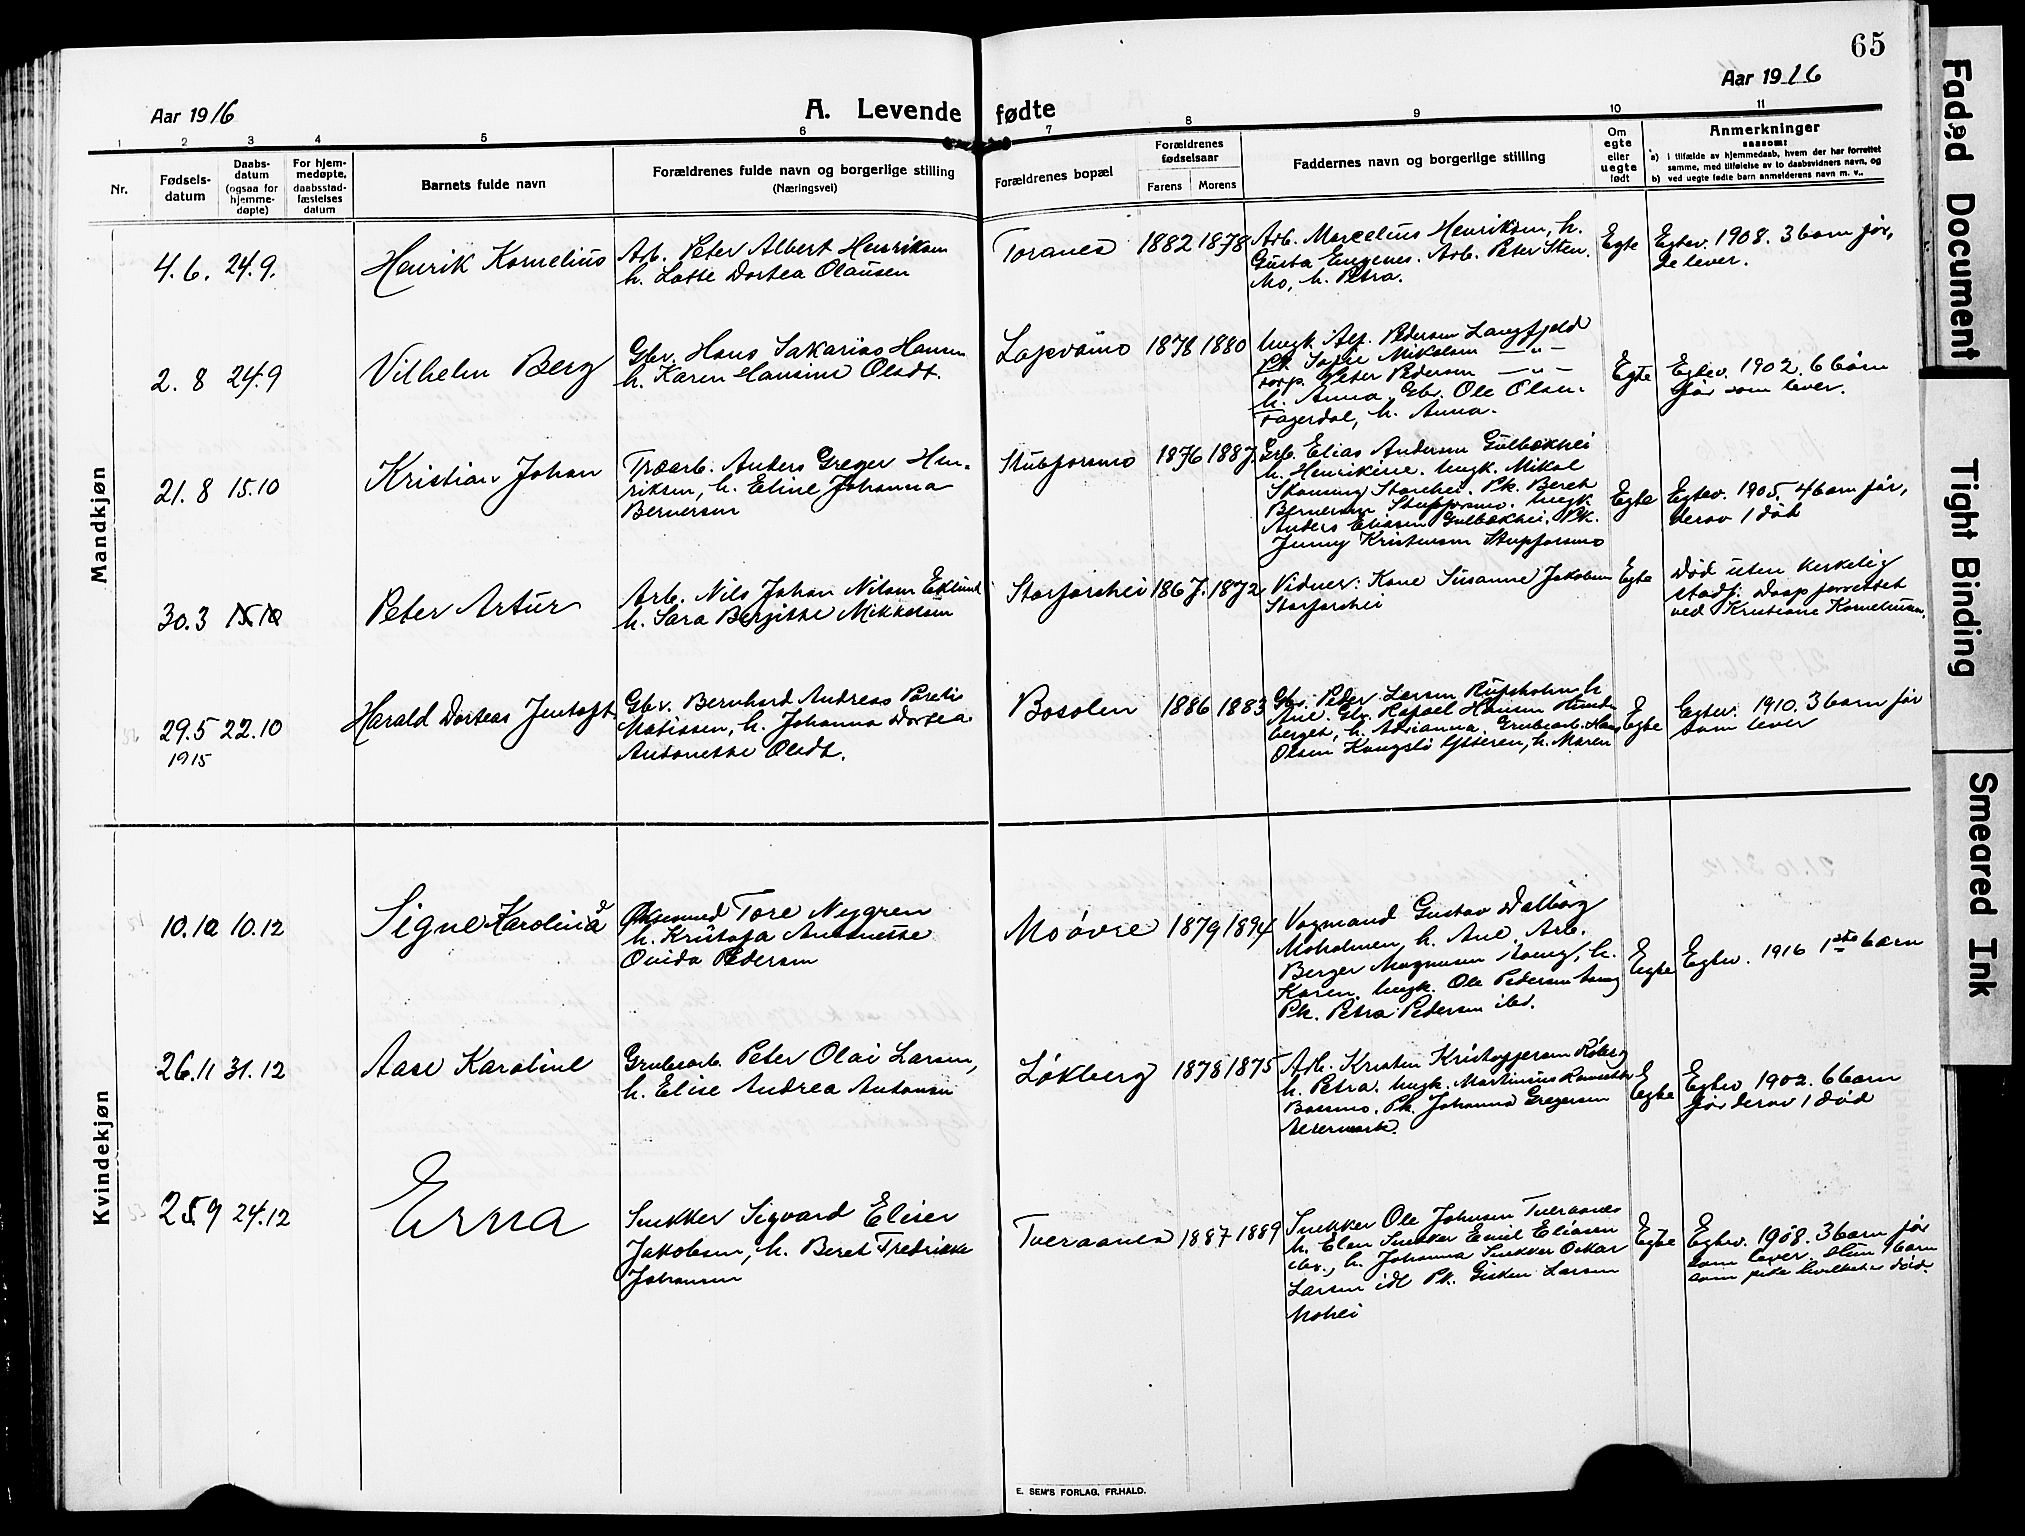 65
Aar 1916
Aar 1916
A. Levende fødte
1 2 3 4 5 6 7 8 9 10 11
Nr.
Fødsels-
datum
Daabs-
datum
(ogsaa for
hjemme-
døpte)
For hjem-
medøpte,
daabsstad-
fæstelses
datum
Barnets fulde navn
Forældrenes fulde navn og borgerlige stilling
(Næringsvei)
Forældrenes bopæl
Forældrenes
fødselsaar
Farens Morens
Faddernes navn og borgerlige stilling
Om
egte
eller
uegte
født
Anmerkninger
saasom:
a) i tilfælde av hjemmedaab, hvem der har forrettet
samme, med tilføielse av to daabsvidners navn, og
b) ved uegte fødte barn anmelderens navn m. v..
Mandkjøn
4.6. 24.9.
Henrik Kornelius
Arb. Peter Albert Henriksen
h. Lotte Dortea Olausen
Toranes
1882 1878
Arb. Marcelius Henriksen, h.
Gusta Engenes. Arb. Peter Sten.
Mo, h. Petra.
Egte
Egtev. 1908. 3 barn før,
de lever.
2.8 24.9
Vilhelm Berg
Gbr. Hans Sakarias Hansen
h. Karen Hansine Olsdt.
Lapvåmo
1878 1880
Ungk. Alf. Pedersen Langfjeld
Pk. Mikalsen — „ —
Peter Pedersen — „ —
h. Anna. Gbr. Ole Olsen
Fagerdal, h. Anna.
Egte
Egtev. 1902. 6 barn
før som lever.
21.8 15.10
Kristian Johan
Træarb. Anders Greger Hen-
riksen, h. Eline Johanna
Bernersen
Stubforsmo
1876 1887
Grb. Elias Andersen Gulbækhei
h. Henrikine. Ungk. Mikal
Storhei. Pk. Beret
Bernersen Stupforsmo. Ungk.
Anders Eliassen Gulbækhei. Pk.
Jenny Kristensen Stupforsmo
Egte
Egtev. 1905. 4 barn før,
derav 1 död
30.3 15.10
Peter Artur
Arb. Nils Johan Nilsen Eklund
h. Sara Bergitte Mikkelsen
Storforshei
1867. 1872
Vidner: Kone Susanne Jakobsen
Storforshei
Egte
Død uten kirkelig
stadf. Daap forrettet
ved Kristiane Korneliusen.
29.5 22.10
1915
Harald Dorteas Jentoft
Gbr. Bernhard Andreas Parelis
Matissen, h. Johanna Dortea
Antonette Olsdt.
Bosolen
1886 1883
Gbr. Peder Larsen Rufsholm h
Ane. Gbr. Rafael Hansen
berget, h. Adrianna. Grubearb. Hans
Olsen Kangsli Ytteren, h. Maren
Egte
Egtev. 1910. 3 barn før
som lever
Kvindekjøn
10.10 10.12
Signe Karolina
Tore Nygren
h. Kristofa Antonette
Ovida Pedersen
Moøvre
1879 1894
Vogmand Gustav Dalborg
Moholmen, h. Ane. Arb.
Berger Magnussen, h.
Karen. Ungk. Ole Pedersen
Pk. Petra Pedersen ibd.
Egte
Egtev. 1916 1ste barn
26.11 31.12
Aase Karoline
Grubearb. Peter Olai Larsen,
h. Elise Andrea Antonsen
Løkberg
1878 1875
Arb. Kristen Kristoffersen
h. Petra. Ungk. Martinius
Bossmo. Pk. Johanna Gregersen
Egte
Egtev 1902. 6 barn
før derav 1 död
25.9 24.12
Erna
Snekker Sigvard Eliser
Jakobsen, h. Beret Fredrikke
Johansen
Tveraanes
1887 1889
Snekker Ole Johnsen Tveraanes
h. Elen Snekker Emil Eliasen
ibr., h. Johanna Snekker Oskar
Larsen ibd Pk. Gisken Larsen
Mohei
Egte
Egtev. 1908. 3 barn før
som lever.
E. SEM'S FORLAG, FR.HALD.
Faded Document
Tight Binding
Smeared Ink